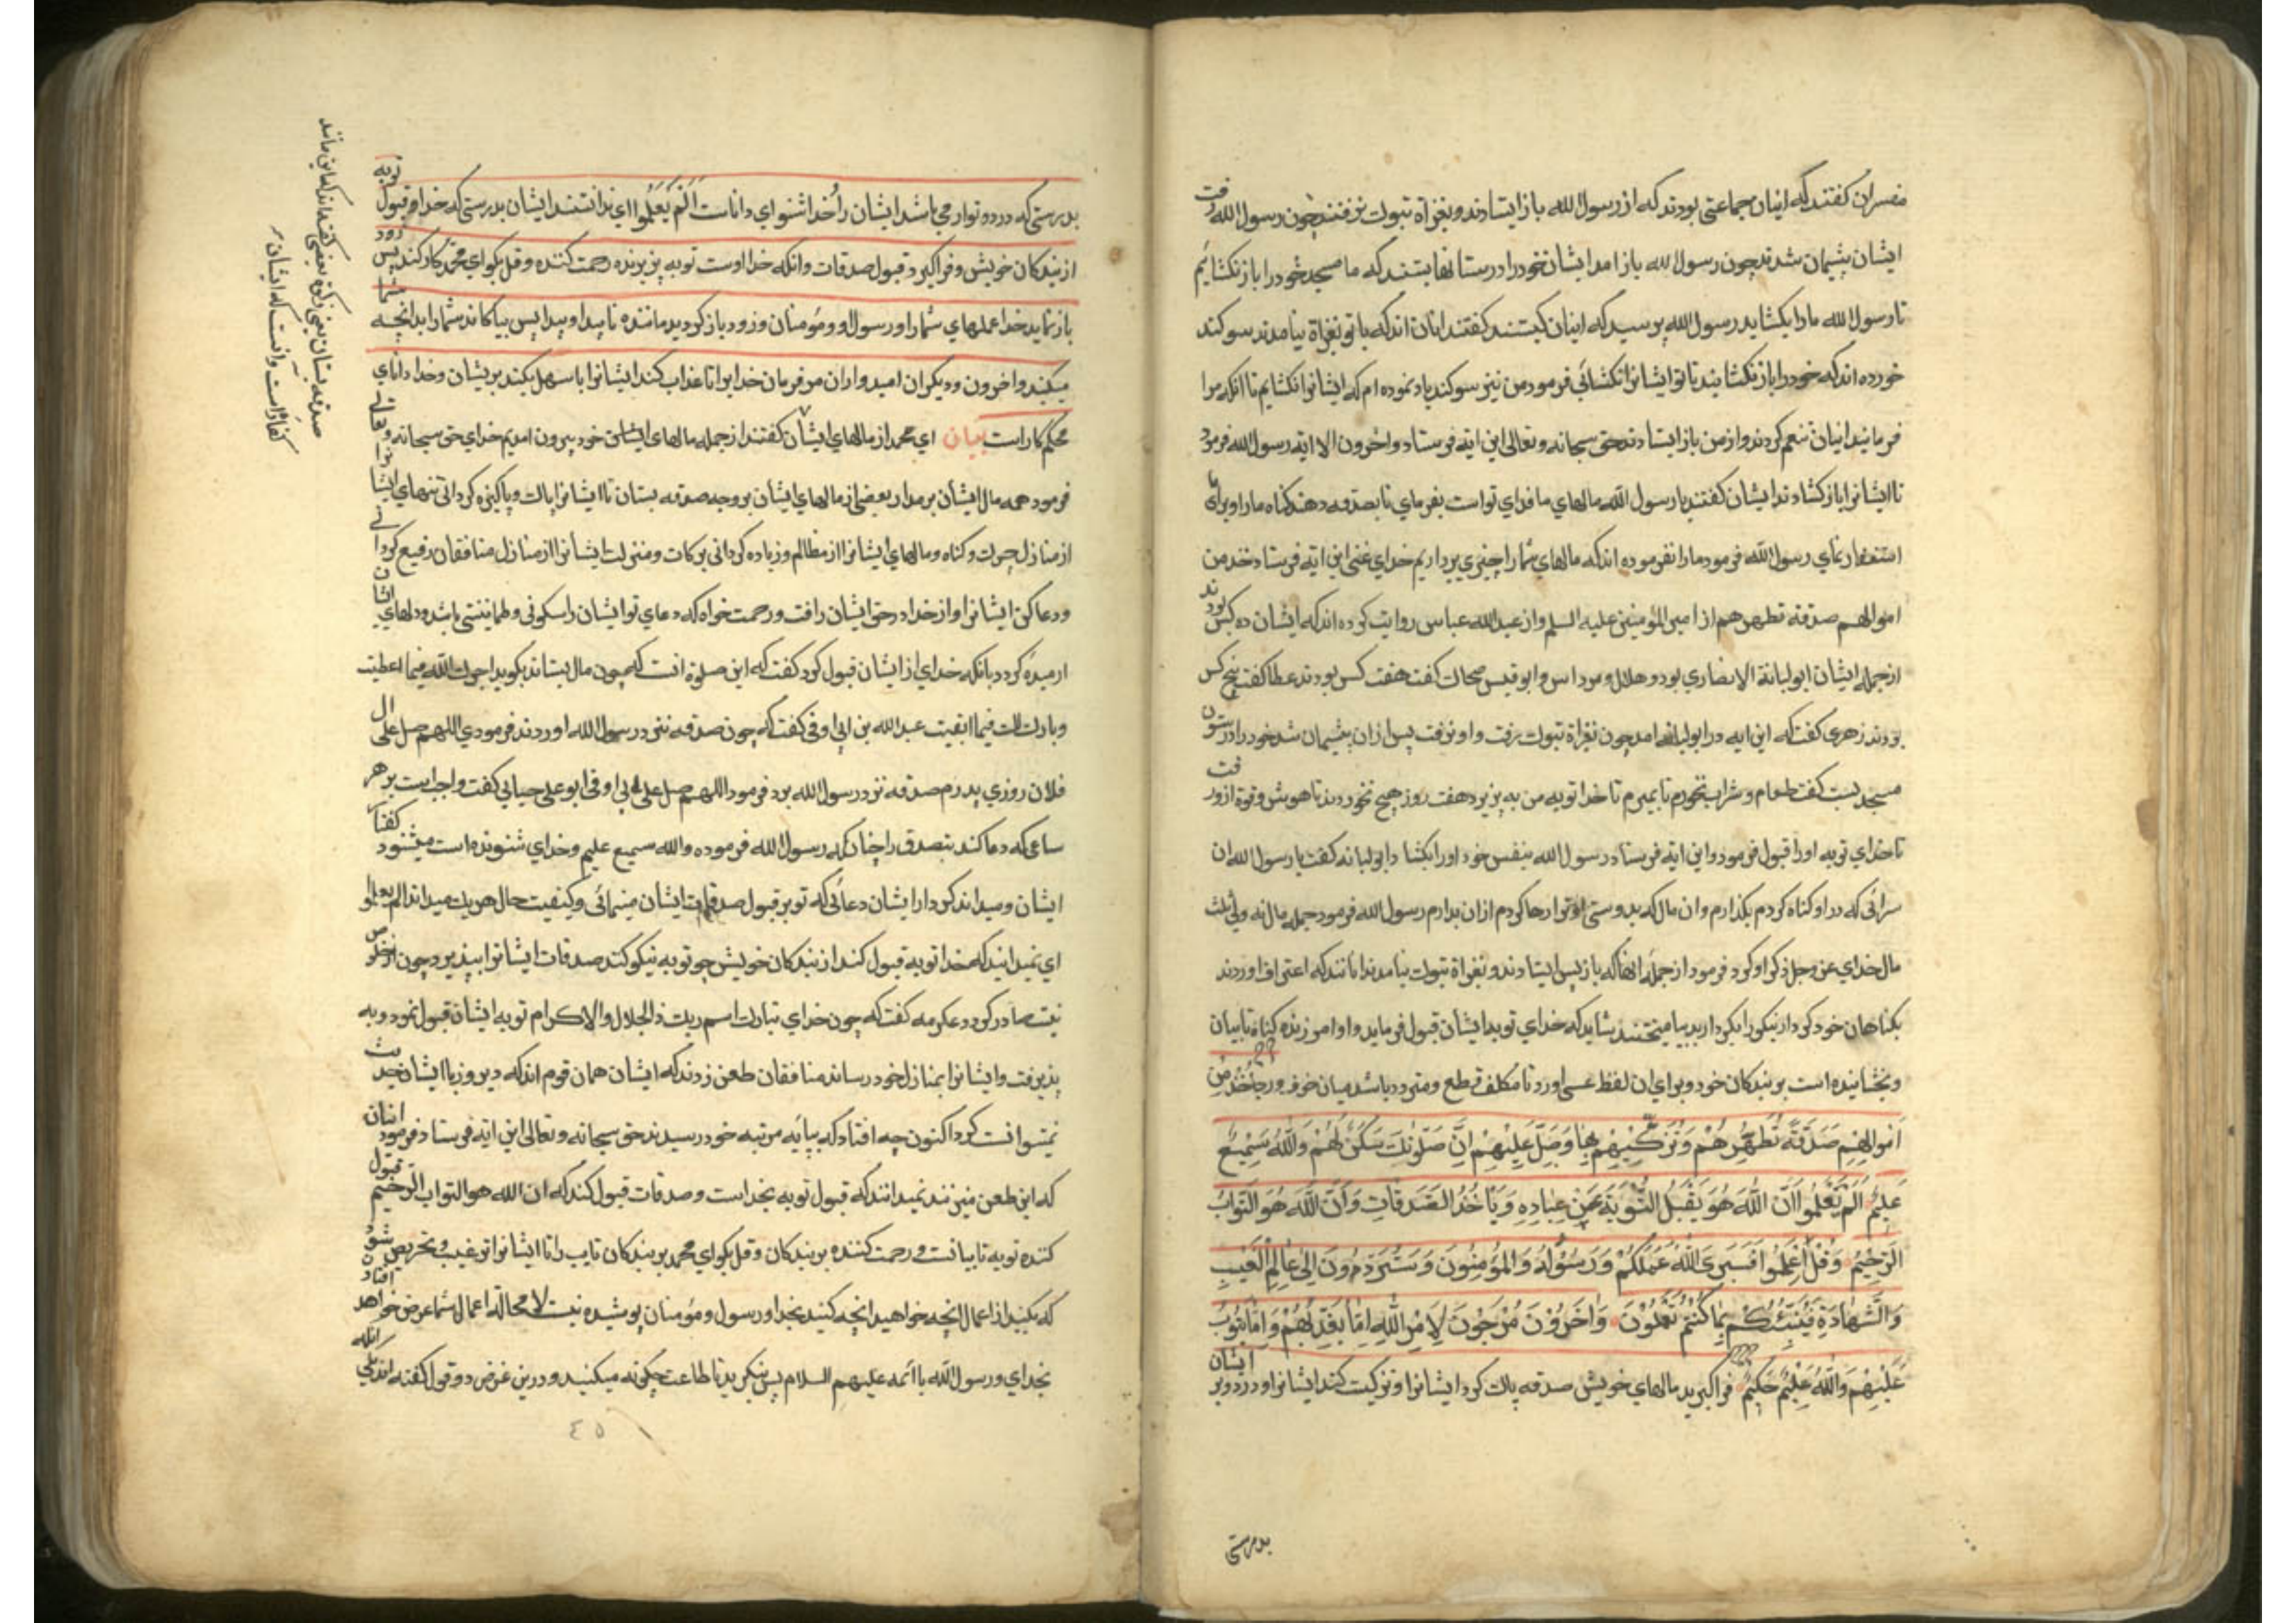 مفسران کفتند که اینان جماعتی بودند که از رسول الله باز ایستادند و بغزاة تبوک نرفتند چون رسول الله رفت
ایشان پشیمان شدند چون رسول الله باز امد ایشان خود را در ستانها بستند که ما مسجد خود را باز نکشایم
تا رسول الله ما را بکشاید رسول الله پرسید که اینان کیستند کفتند اینان اند که با تو بغزاة نیامدند سوکند
خورده اند که خود را باز نکشایند تا تو ایشانرا نکشائی فرمود من نیز سوکند یاد نموده ام که ایشانرا نکشایم تا انکه مرا
فرمایند اینان تنعم کردند و از من باز ایستادند حق سبحانه و تعالی این ایه فرستاد و اخرون الا ایه رسول الله فرمود
تا ایشانرا باز کشادند ایشان کفتند یا رسول الله مالهای ما فدای تو است بفرمای تا بصدقه دهند کناه ما را و برای ما
استغفار نمای رسول الله فرمود ما را نفرموده اند که مالهای شما را چیزی برداریم خدای غنی این ایه فرستاد خذ من
اموالهم صدقة تطهرهم از امیر المؤمنین علیه السلم و از عبد الله عباس روایت کرده اند که ایشان ده کس بودند
از جمله ایشان ابو لبابة الانصاری بود و هلال و مرداس و ابو قیس ضحاک کفت هفت کس بودند عطا کفت پنج کس
بودند زهری کفت که این ایه در ابو لبابه امد چون بغزاة تبوک برفت و او نرفت پس ازان پشیمان شد خود را در ستون
مسجد بست کفت طعام و شراب نخورم تا بمیرم تا خدا توبه من به پزیرد هفت روز هیچ نخوردند تا هوش و قوة از و رفت
تا خدای توبه او را قبول فرمود و این ایه فرستاد رسول الله بنفس خود او را بکشاد ابو لبابه کفت یا رسول الله ان
سرائی که در او کناه کردم بکذارم و ان مال که بدوستی او توار رها کردم ازان بدارم رسول الله فرمود جمله مال نه ولی ثلث
مال خدای عز و جل ذکر او کرد فرمود از جمله انها که باز پس ایستادند و بغزاة تبوک نیامدند انانند که اعتراف اوردند
بکناهان خود کردار نیکو را بکردار بد بیامیختند شاید که خدای توبه ایشان قبول فرماید و او امرزنده کناه تایبان
و بخشاینده است بر بندکان خود و برای ان لفظ عسی اورد تا مکلف قطع و متردد باشد میان خوف و رجا خذ من
اموالهم صدقة تطهرهم وتزكيهم بها وصل عليهم ان صلوتك سكن لهم والله سميع
عليم الم يعلموا ان الله هو يقبل التوبة عن عباده و ياخذ الصدقات وان الله هو التواب
الرحيم وقل اعملوا فسيرى الله عملكم ورسوله والمؤمنون وستردون الى عالم الغيب
والشهادة فينبئكم بما كنتم تعملون واخرون مرجون لامر الله اما يعذبهم واما يتوب
عليهم والله عليم حكيم فراکیرید مالهای خویش صدقه پاک کرد ایشانرا و تزکیت کند ایشانرا و درود بر ایشان
بدرستی
بدرستی که درود تو ارمی باشد ایشان را و خدا شنوای داناست الم یعلموا ای ندانستند ایشان بدرستی که خدا و قبول توبه
از بندکان خویش و فراکیرد قبول صدقات و انکه خدا اوست توبه پزیرنده رحمت کننده و قل بکو ای محمد کار کنید پس زود
باز نماید خدا عملهای شما را و رسول او و مؤمنان و زود باز کردید ماننده ناپیدا و پیدا پس بیاکاند شما را بدانچه شما
میکنید و اخرون و دیکران امیدواران مر فرمان خدایرا تا عذاب کند ایشانرا یا سهل بکند بریشان و خدا دانای
محکم کار است بیان ای محمد از مالهای ایشان کفتند از جمله مالهای ایشان خود بیرون امدیم خدای حق سبحانه و تعالی
فرمود همه مال ایشان بر مدار بعضی از مالهای ایشان بر وجه صدقه بستان تا ایشانرا پاک و پاکیزه کردانی تنهای ایشان
از منازل چرک و کناه و مالهای ایشانرا از مظالم و زیاده کردانی برکات و منزلت ایشانرا از منازل منافقان رفیع کردانی
و دعا کن ایشانرا و از خدا در حق ایشان رافت و رحمت خواه که دعای تو ایشان را سکونی و طمانینتی باشد و دلهای ایشان
ارمیده کردد بانکه خدای از ایشان قبول کرد کفت که این صلوة انست که چون مال بستاند بکوید اجرک الله فیما اعطیت
و بارک لک فیما ابقیت عبد الله بن ابی اوفی کفت که چون صدقه نزد رسول الله اوردند فرمودی اللهم صل علی ال
فلان روزی پدرم صدقه نزد رسول الله برد فرمود اللهم صل علی ال ابی اوفی ابو علی جبایی کفت واجبست بر هر
ساعی که دعا کند بتصدق را چنان که رسول الله فرموده والله سمیع علیم و خدای شنونده است میشنود کفتار
ایشان و میداند کردار ایشان دعائی که تو بر قبول صدقات ایشان مینمائی و کیفیت حال هر یک میداند الم یعلموا
ای نمیدانید که خدا توبه قبول کند از بندکان خویش چو توبه نیکو کنند صدقات ایشانرا بپذیرد چون از خلوص
نیت صادر کردد عکرمه کفت که چون خدای تبارک اسم ربک ذی الجلال و الاکرام توبه ایشان قبول نمود و به
پذیرفت و ایشانرا بمنازل خود رساند منافقان طعن زدند که ایشان همان قوم اند که دیروز با ایشان حدیث
نمیتوانست کرد اکنون چه افتاد که بپایه مرتبه خود رسیدند حق سبحانه و تعالی این ایه فرستاد فرمود اینان
که این طعن میزنند نمیدانند که قبول توبه بخداست و صدقات قبول کند که ان الله هو التواب الرحیم قبول
کننده توبه تایبانست و رحمت کننده بر بندکان و قل بکو ای محمد بر بندکان تایب را تا ایشانرا ترغیب و تحریص شود
که بکنید از اعمال انچه خواهید انچه کنید بخدا و رسول و مؤمنان پوشیده نیست لا محاله اعمال شما عرض خواهد افتاد
بخدای و رسول الله با ائمه علیهم السلام پس بنکرید تا طاعت چکونه میکنید و درین عرض دو قول کفته اند یکی انکه
صدقه بستان یعنی زکوة بعضی کفته اند که مابین ماند
کفارتست و انست که ایشان
٤٥